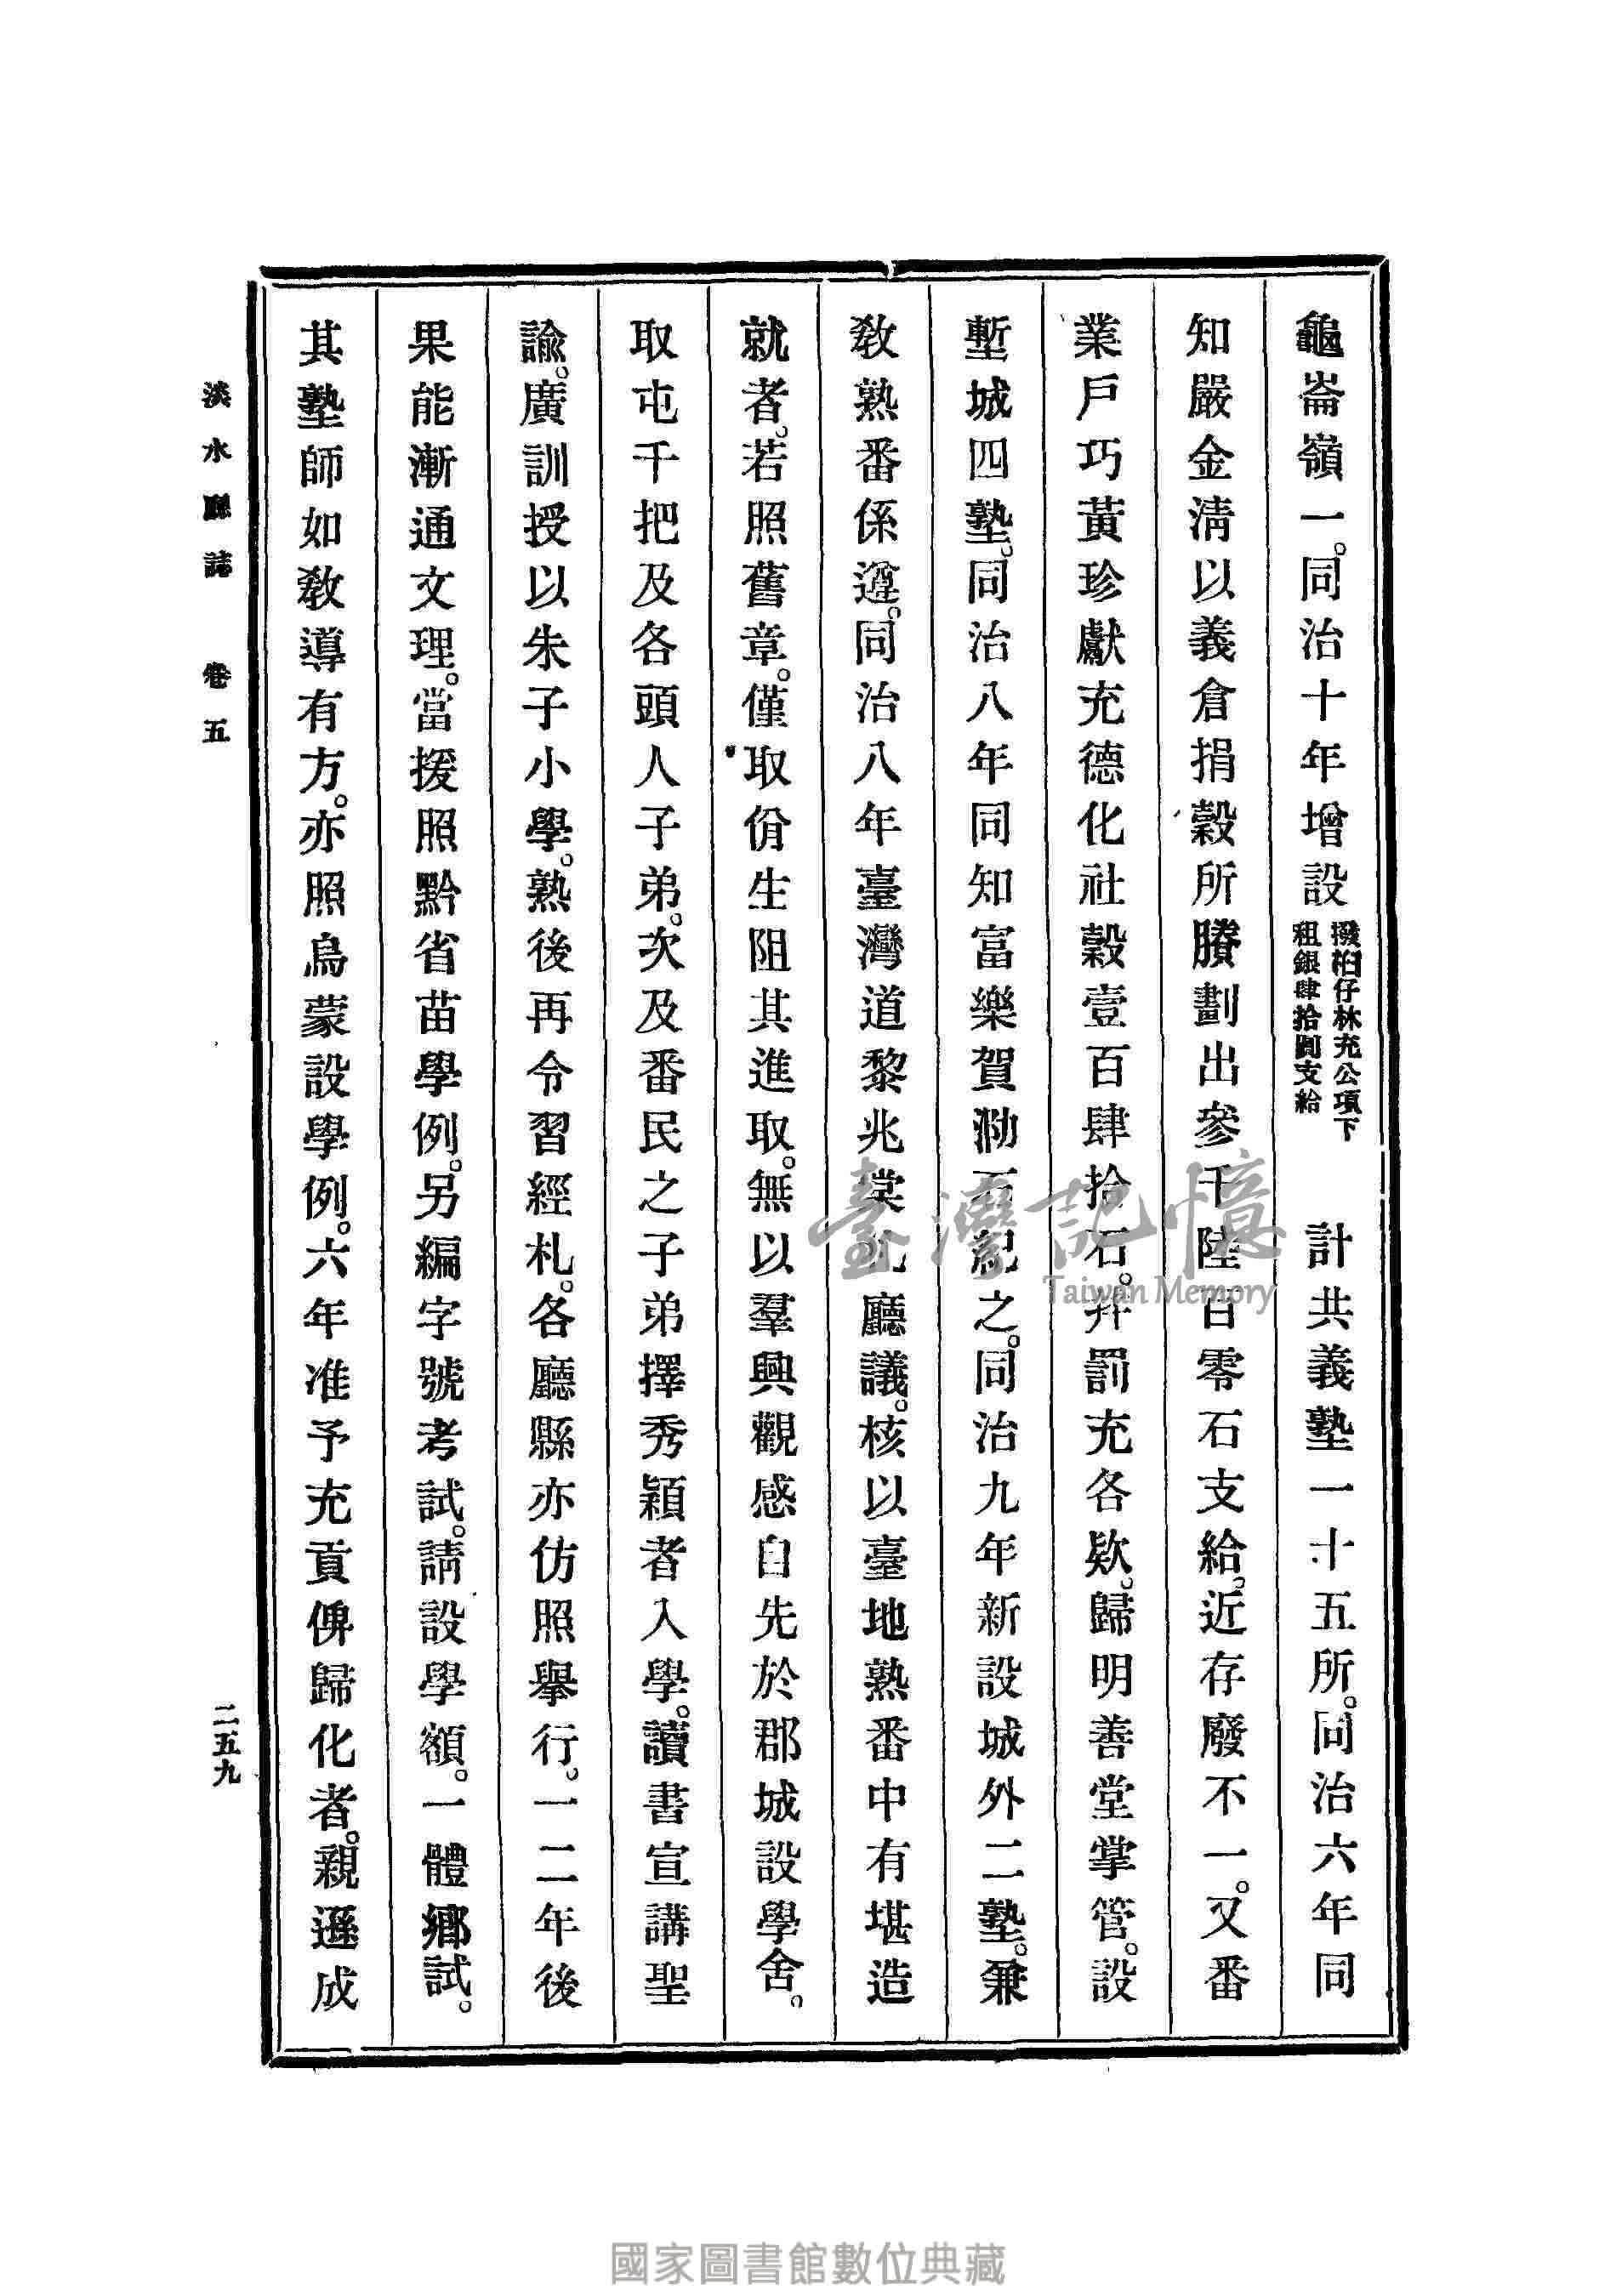 龜崙嶺一。同治十年增設撥桕仔林充公項下租銀肆拾圓支給 計共義塾一十五所。同治六年同
知嚴金清以義倉捐穀所賸劃出參千陸百零石支給。近存廢不一。又番
業戶巧黃珍獻充德化社穀壹百肆拾石。并罰充各欵。歸明善堂掌管。設
塹城四塾。同治八年同知富樂賀泐石紀之。同治九年新設城外二塾。兼
教熟番係遵。同治八年臺灣道黎兆棠札廳議。核以臺地熟番中有堪造
就者。若照舊章。僅取佾生阻其進取。無以羣興觀感自先於郡城設學舍。
取屯千把及各頭人子弟。次及番民之子弟擇秀穎者入學。讀書宣講聖
諭。廣訓授以朱子小學。熟後再令習經札。各廳縣亦仿照舉行。一二年後
果能漸通文理。當援照黔省苗學例。另編字號考試。請設學額。一體鄉試。
其塾師如教導有方。亦照烏蒙設學例。六年准予充貢俾歸化者。親遜成
淡水廳誌 卷五
二五九
臺灣記憶
Taiwan Memory
國家圖書館數位典藏